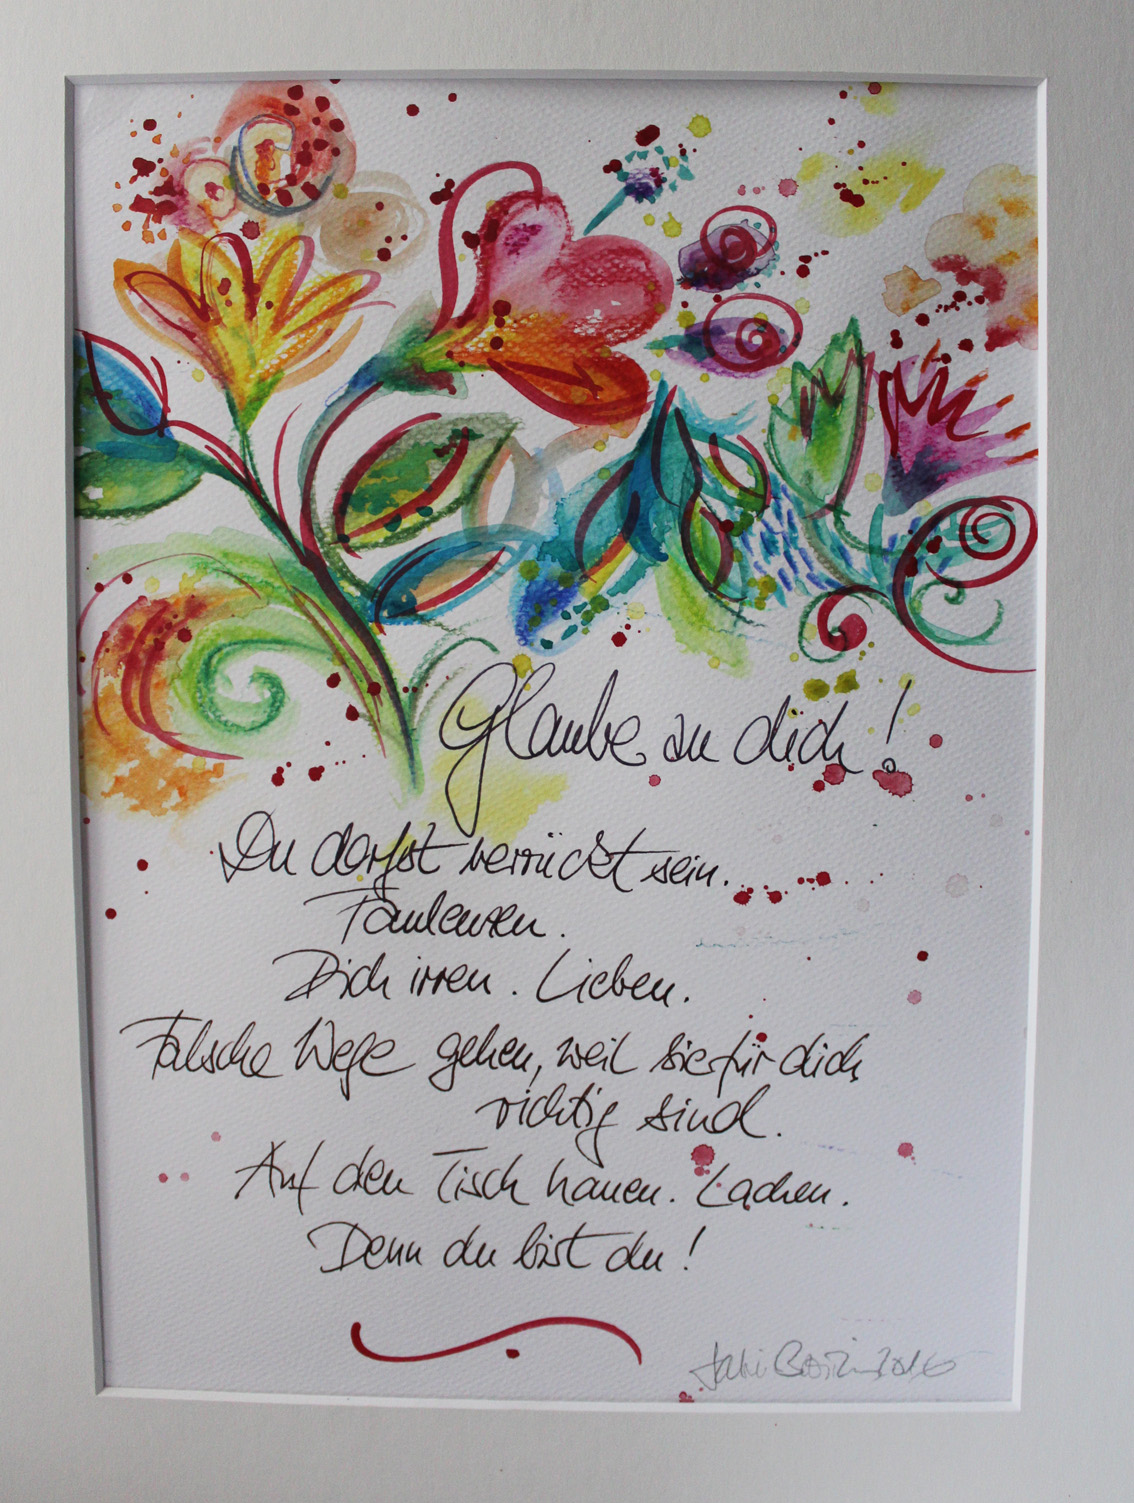 Glaube an dich!
Du darfst verrückt sein.
Faulenzen.
Dich irren. Lieben.
Falsche Wege gehen, weil sie für dich
richtig sind.
Auf den Tisch hauen. Lachen.
Denn du bist du!
2016